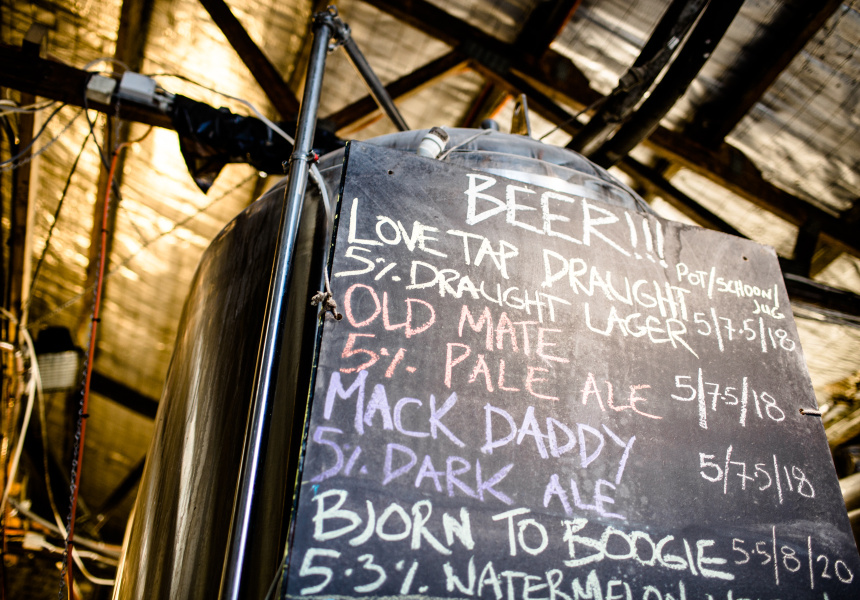 BEER!!!
POT/SCHOON/
JUG
LOVE TAP DRAUGHT
5% DRAUGHT LAGER 5/7.5/18
OLD MATE
5% PALE ALE 5/7.5/18
MACK DADDY
5% DARK ALE 5/7.5/18
BJORN TO BOOGIE 5.5/8/20
5.3% WATERMELON